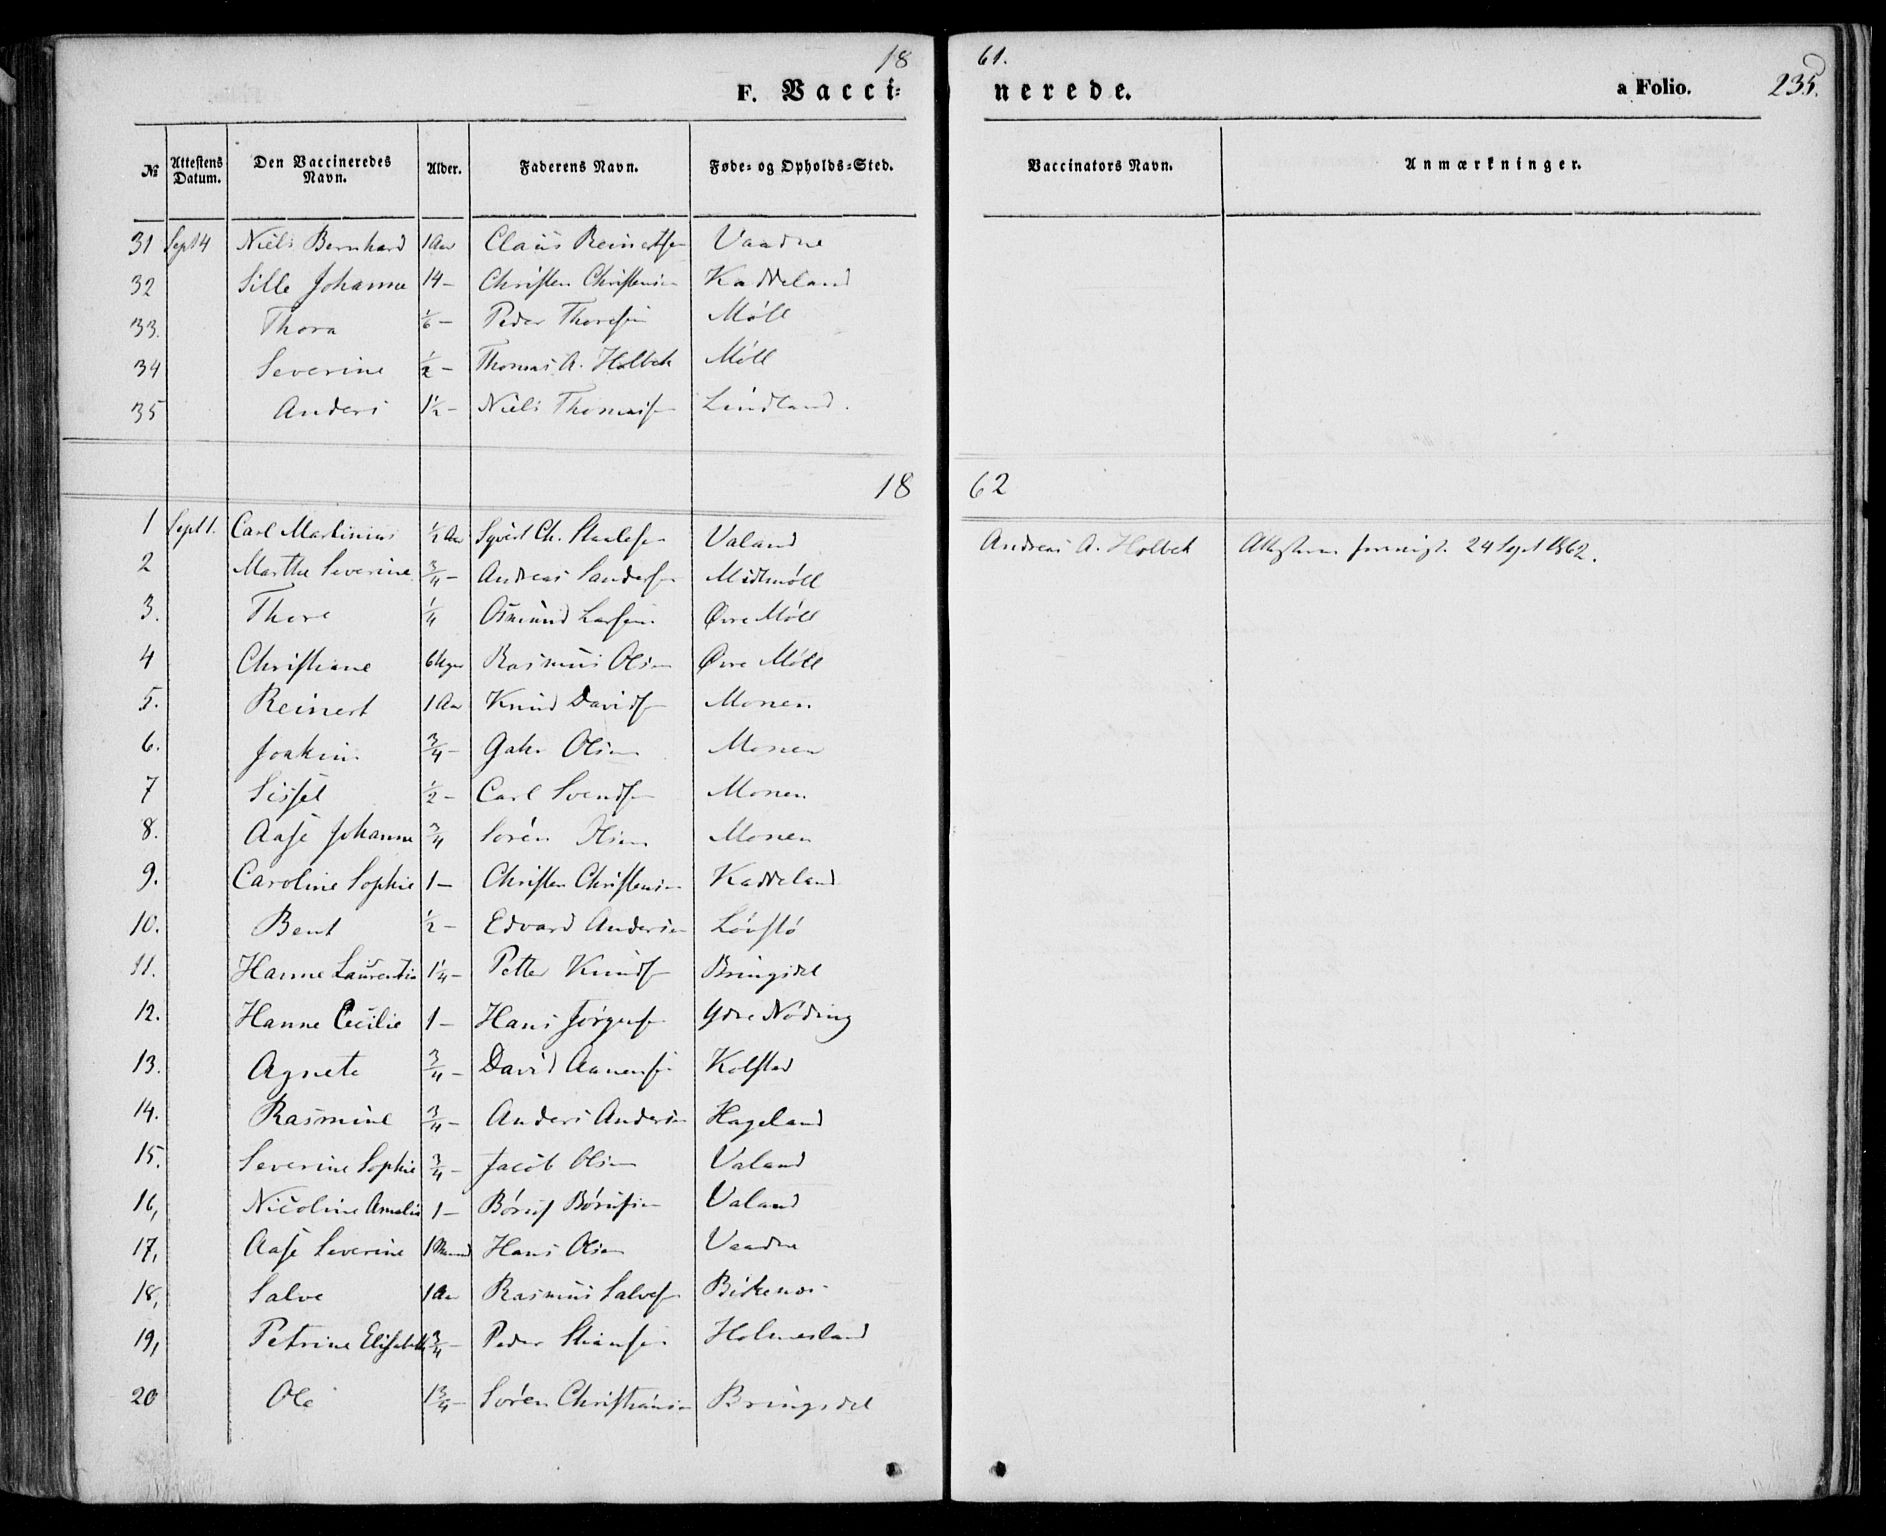 18 61.
F. Vaccinerede. a Folio. 235.
No Attestens Datum. Den Vaccineredes Navn. Alder. Faderens Navn. Føde- og Opholds-Sted. Vaccinators Navn. Anmærkninger.
31 Sept 4 Niels Bernhard 1 Aar Claus Reinertsen Vaadne
32 Sille Johanne 14 - Christen Christensen Kaddeland
33. Thora 1/6 - Peder Thoresen Møll
34 Severine 1/2 - Thomas A. Holbek Møll
35 Anders 1 1/2 - Niels Thomass Lindland.
18 62
1 Sept 1. Carl Martinius 1/2 Aar Sqvert Ch. Staalesen Valand Andreas A. Holbek 24 Sept 1862.
2 Marthe Severine 3/4 - Andreas Sandersen Midtmøll
3. Thore 1/4 Osmund Larsen Øvre Møll
4 Christiane 6 Uger Rasmus Olsen Øvre Møll
5. Reinert 1 Aar Knud Davids Monen
6. Joakim 3/4 - Olsen Monen
7 Sissel 1/2 - Carl Svends Monen
8. Aase Johanne 3/4 Søren Olsen Monen
9. Caroline Sophie 1 - Christen Christensen Kaddeland
10. Bent 1/2 - Edvard Andersen Løvstø
11. Hanne Laurentia 1 1/4 - Petter Knuds Bringsdal
12. Hanne Cecilie 1 - Hans Jørgens Ydre Nøding
13. Agnete 3/4 - David Aanensen Kolstad
14. Rasmine 3/4 - Anders Andersen Hageland
15. Severine Sophie 3/4 - Jacob Olsen Valand
16, Nicoline Amalia 1 - Børuf Børufsen Valand
17, Aase Severine 1 Maaned Hans Olsen Vaadne
18, Salve 1 Aar Rasmus Salves Birkenes
19, Petrine Elisabeth 3/4 - Peder Holmesland
20 Ole 1 3/4 - Søren Christiansen Bringsdal